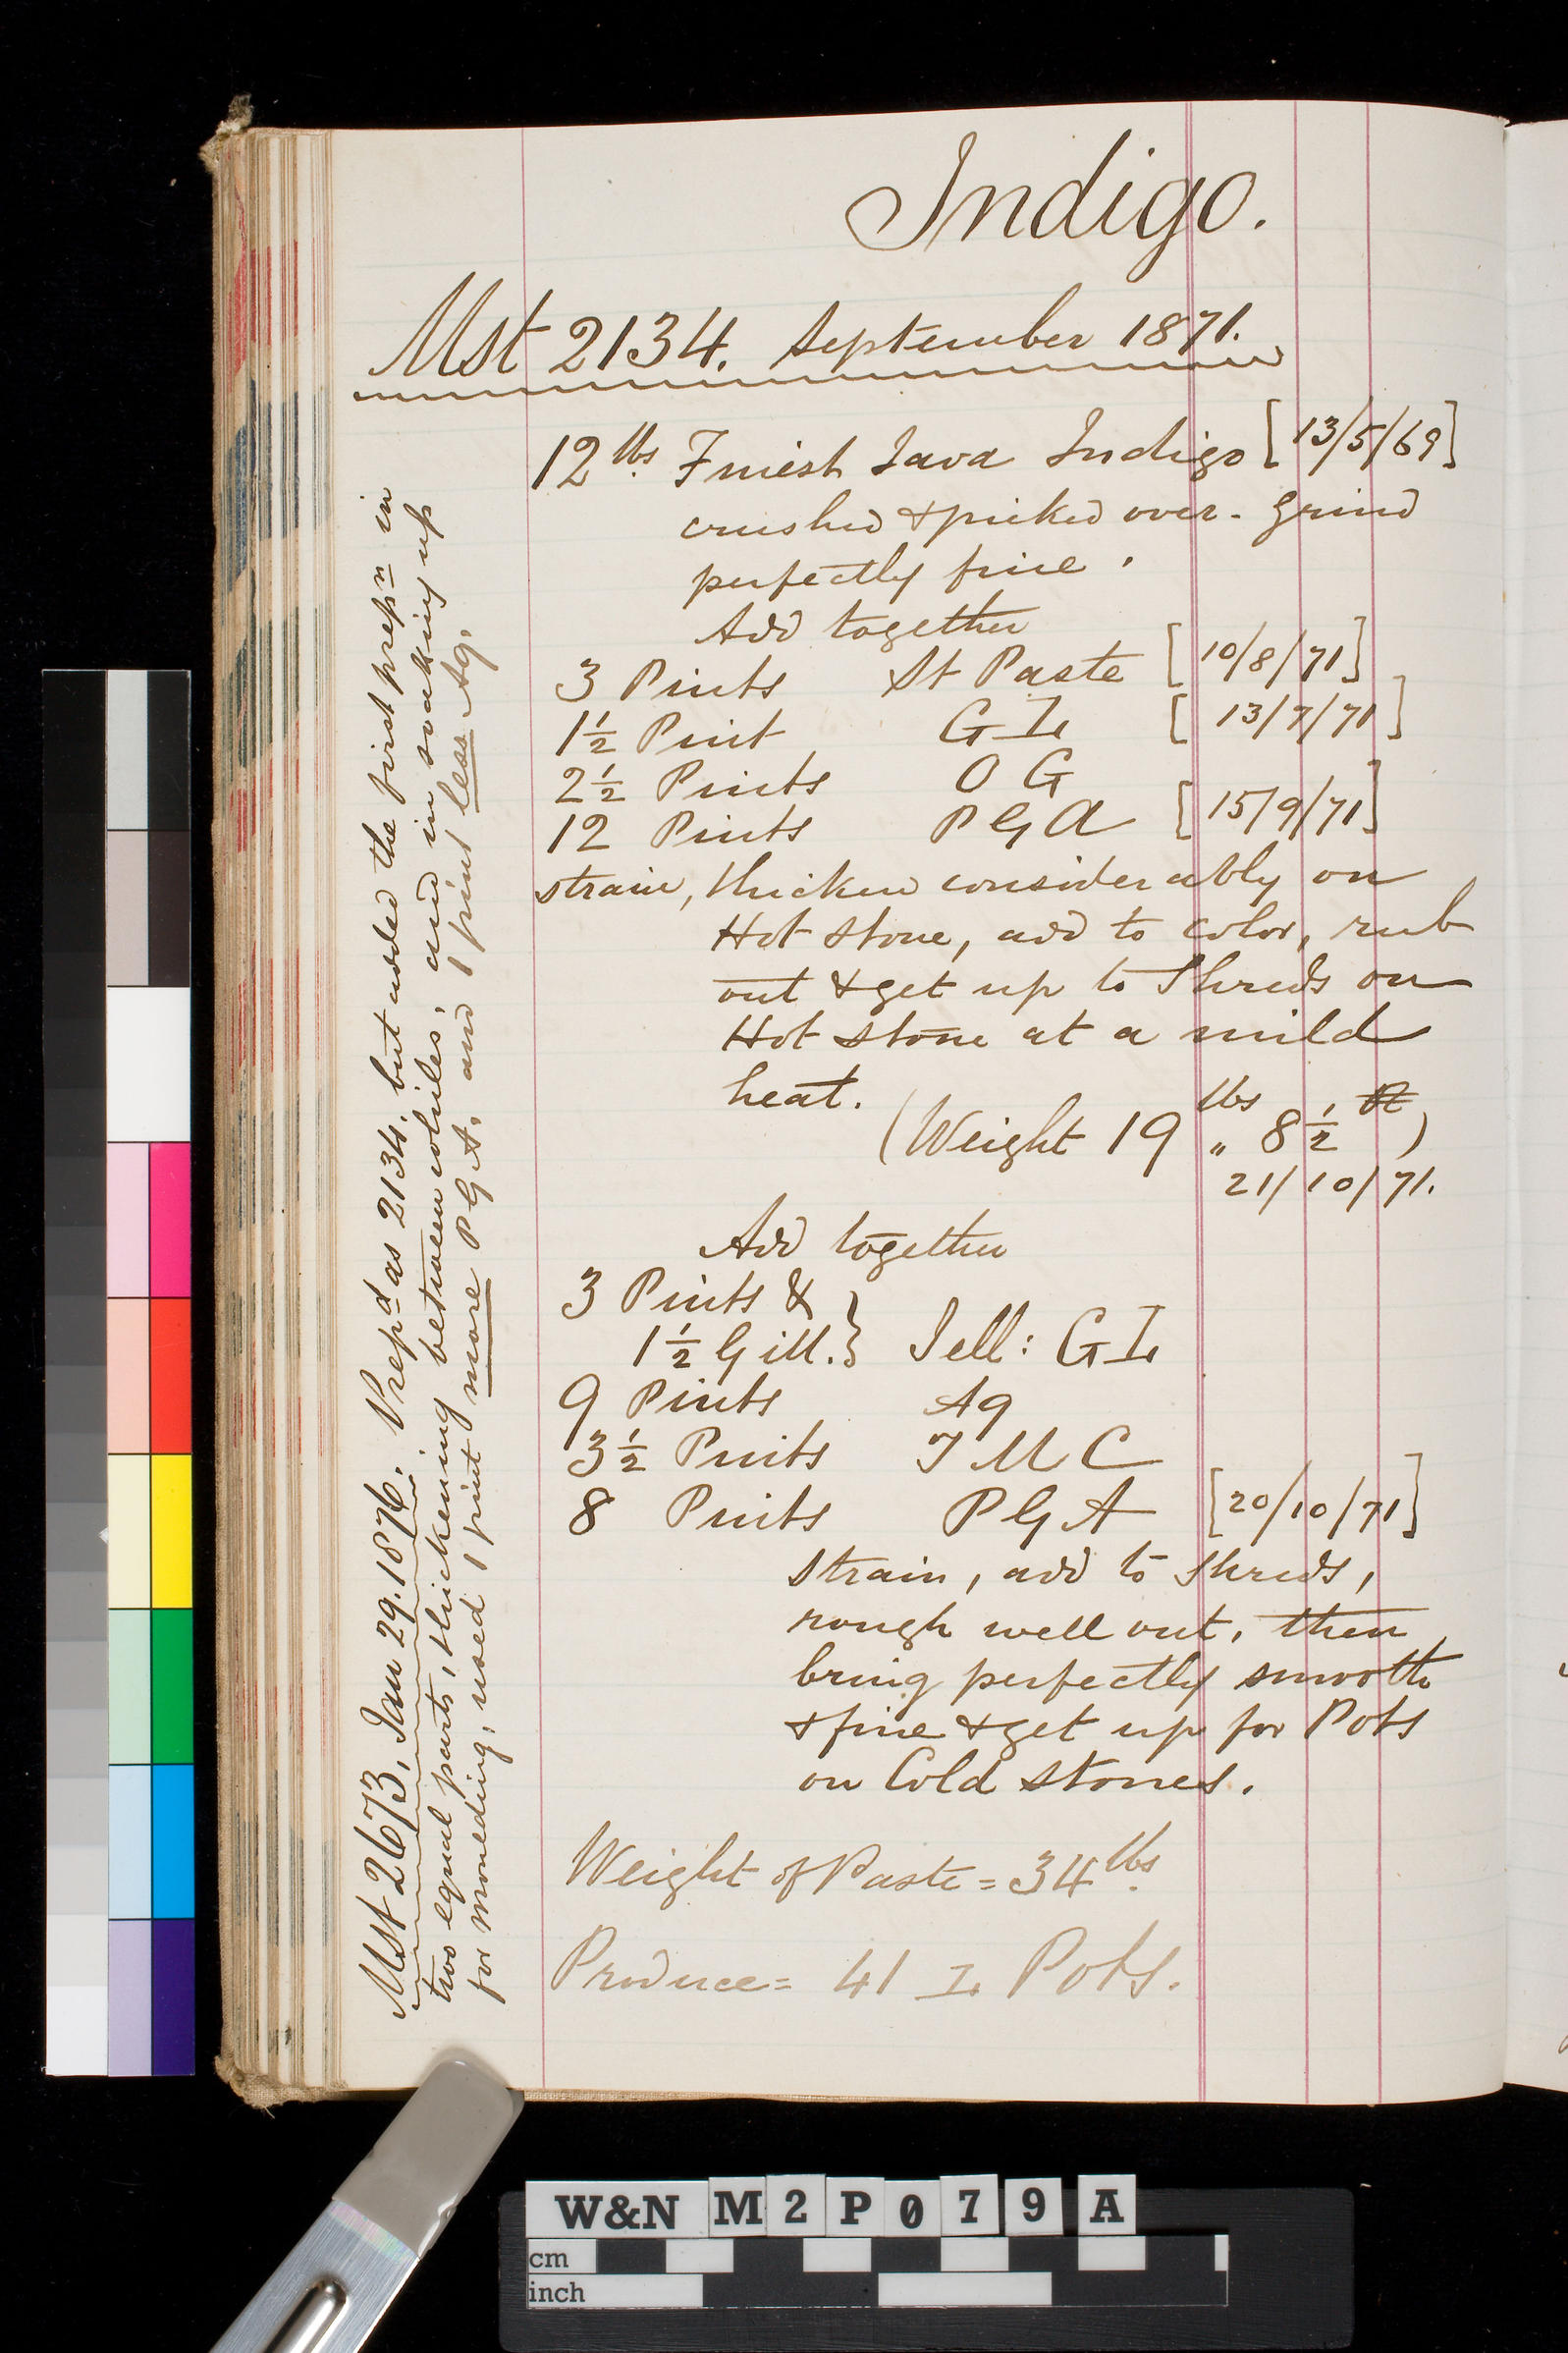 Indigo.
Mst 2134. September 1871.
12 lbs. Finest Java Indigo [13/5/69]
crushed & picked over - grind
perfectly fine.
Add together
3 Pints St Paste [10/8/71]
1½ Pint G I. [13/7/71]
2½ Pints O G
12 Pints P G A [15/9/71]
strain, thicken considerably on
Hot stone, add to color, rub
out & get up to Shreds on
Hot stone at a mild
heat.
(Weight 19 lbs „ 8½)
21/10/71.
Add together
3 Pints &
1½ Gill.} Jell: G I.
9 Pints Aq
3½ Pints T M C
8 Pints P G A [20/10/71]
Strain, add to shreds,
rough well out, then
bring perfectly smooth
& fine & get up for Pots
on Cold stones.
Weight of Paste = 34 lbs.
Produce = 41 I. Pots.
Mst 2673, Jan 29. 1876. Prepd as 2134, but added the first prepn in
two equal parts, thickening between whiles, and in soaking up
for moulding, used 1 pint more P G A, and 1 pint less Aq.
W&N M2P079A
cm
inch